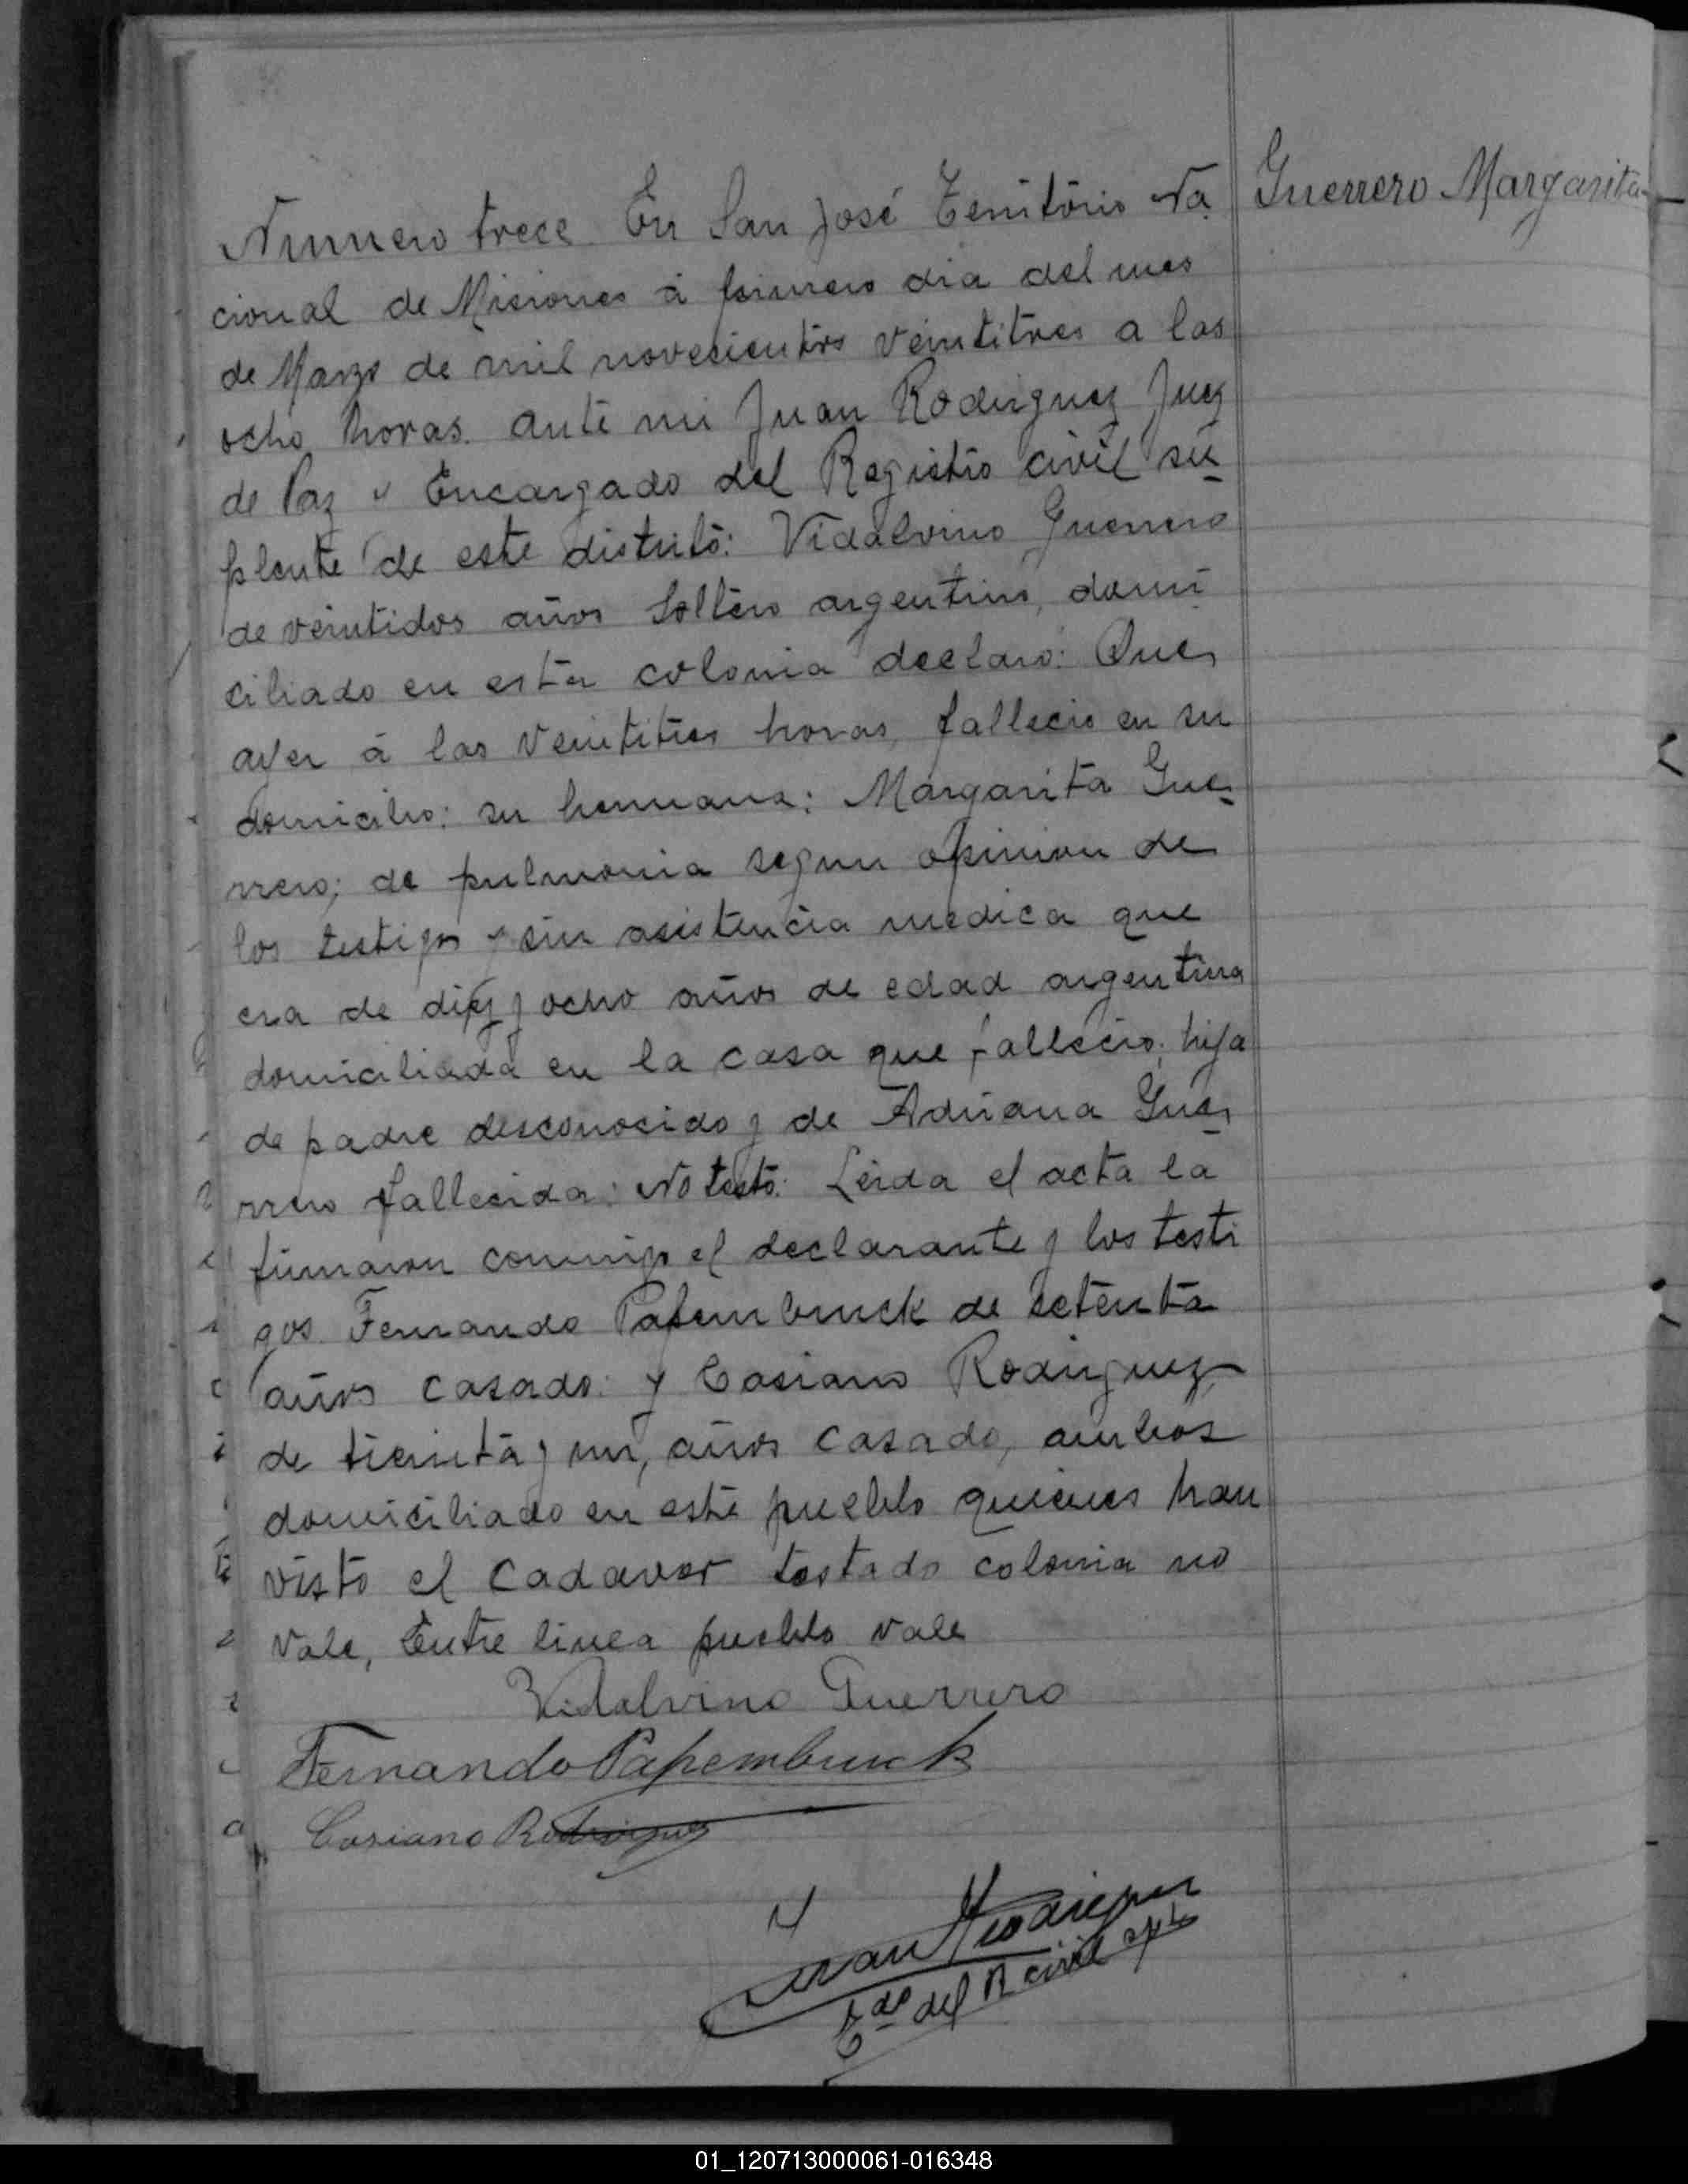 Guerrero Margarita
Numero trece En San José Territorio Na
cional de Misiones á primero dia del mes
de Marzo de mil novecientos veintitres a las
ocho horas. ante mi Juan Rodriguez Juez
de Paz y Encargado del Registro civil su
plente de este distrito: Vidalvino Guerrero
de veintidos años soltero argentino, domi
ciliado en esta colonia declaró: Que
ayer á las veintitres horas, fallecio en su
domicilio: su hermana: Margarita Gue
rrero; de pulmonia segun opinion de
los testigos y sin asistencia medica que
era de diez y ocho años de edad argentina
domiciliada en la casa que fallecio; hija
de padre desconocido y de Adriana Gue
rrero fallecida: No testó: Leida el acta la
firmaron conmigo el declarante y los testi
gos Fernando Papembruck de setenta
años casado: y Casiano Rodriguez
de treinta y un, años casado, ambos
domiciliado en este pueblo quienes han
visto el cadaver testado colonia no
vale, Entre linea pueblo vale
Vidalvino Guerrero
Fernando Papembruck
Casiano Rodriguez
Juan Rodriguez
Edo del R civil spte
01_120713000061-016348